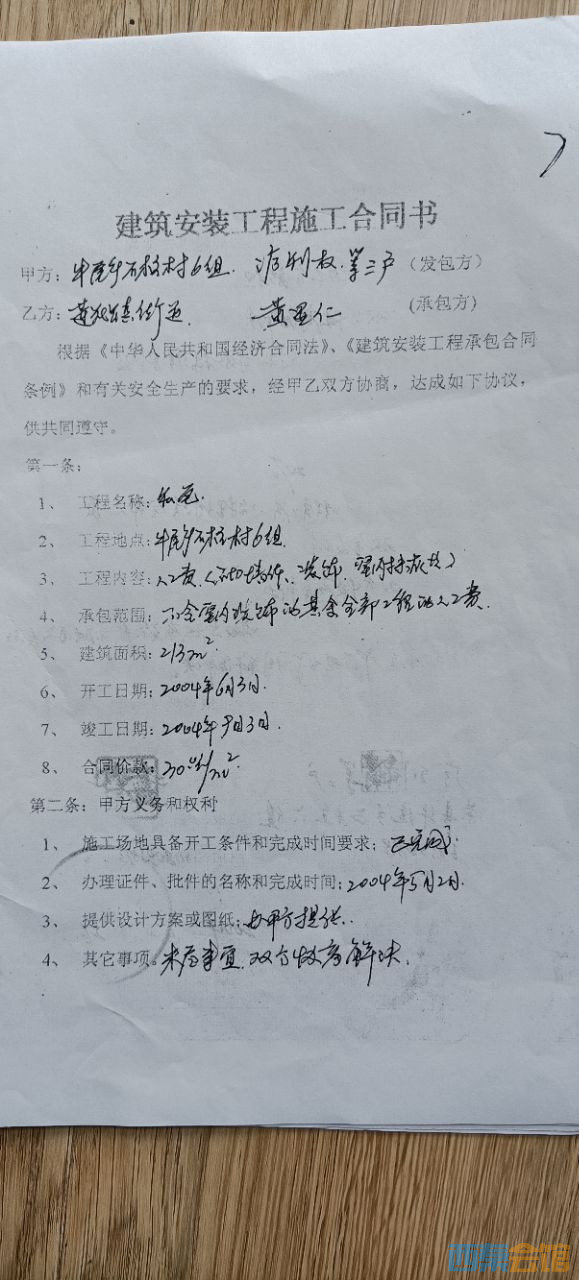 建筑安装工程施工合同书
甲方：牛尾乡石柱村6组. 权.第三户（发包方）
乙方：街道. 黄 仁 (承包方)
根据《中华人民共和国经济合同法》、《建筑安装工程承包合同
条例》和有关安全生产的要求，经甲乙双方协商，达成如下协议，
供共同遵守。
第一条：
1、 工程名称：私宅.
2、 工程地点：牛尾乡石柱村6组.
3、 工程内容：人工费（ 、装饰、室内 ）
4、 承包范围：不含室内装饰的其余全部工程的人工费.
5、 建筑面积：213m².
6、 开工日期：2004年6月3日.
7、 竣工日期：2004年9月3日.
8、 合同价款：/m².
第二条：甲方义务和权利
1、 施工场地具备开工条件和完成时间要求：已完成.
2、 办理证件、批件的名称和完成时间：2004年5月2日.
3、 提供设计方案或图纸：由甲方提供.
4、 其它事项。未尽事宜.双方协商解决.
西祠会馆